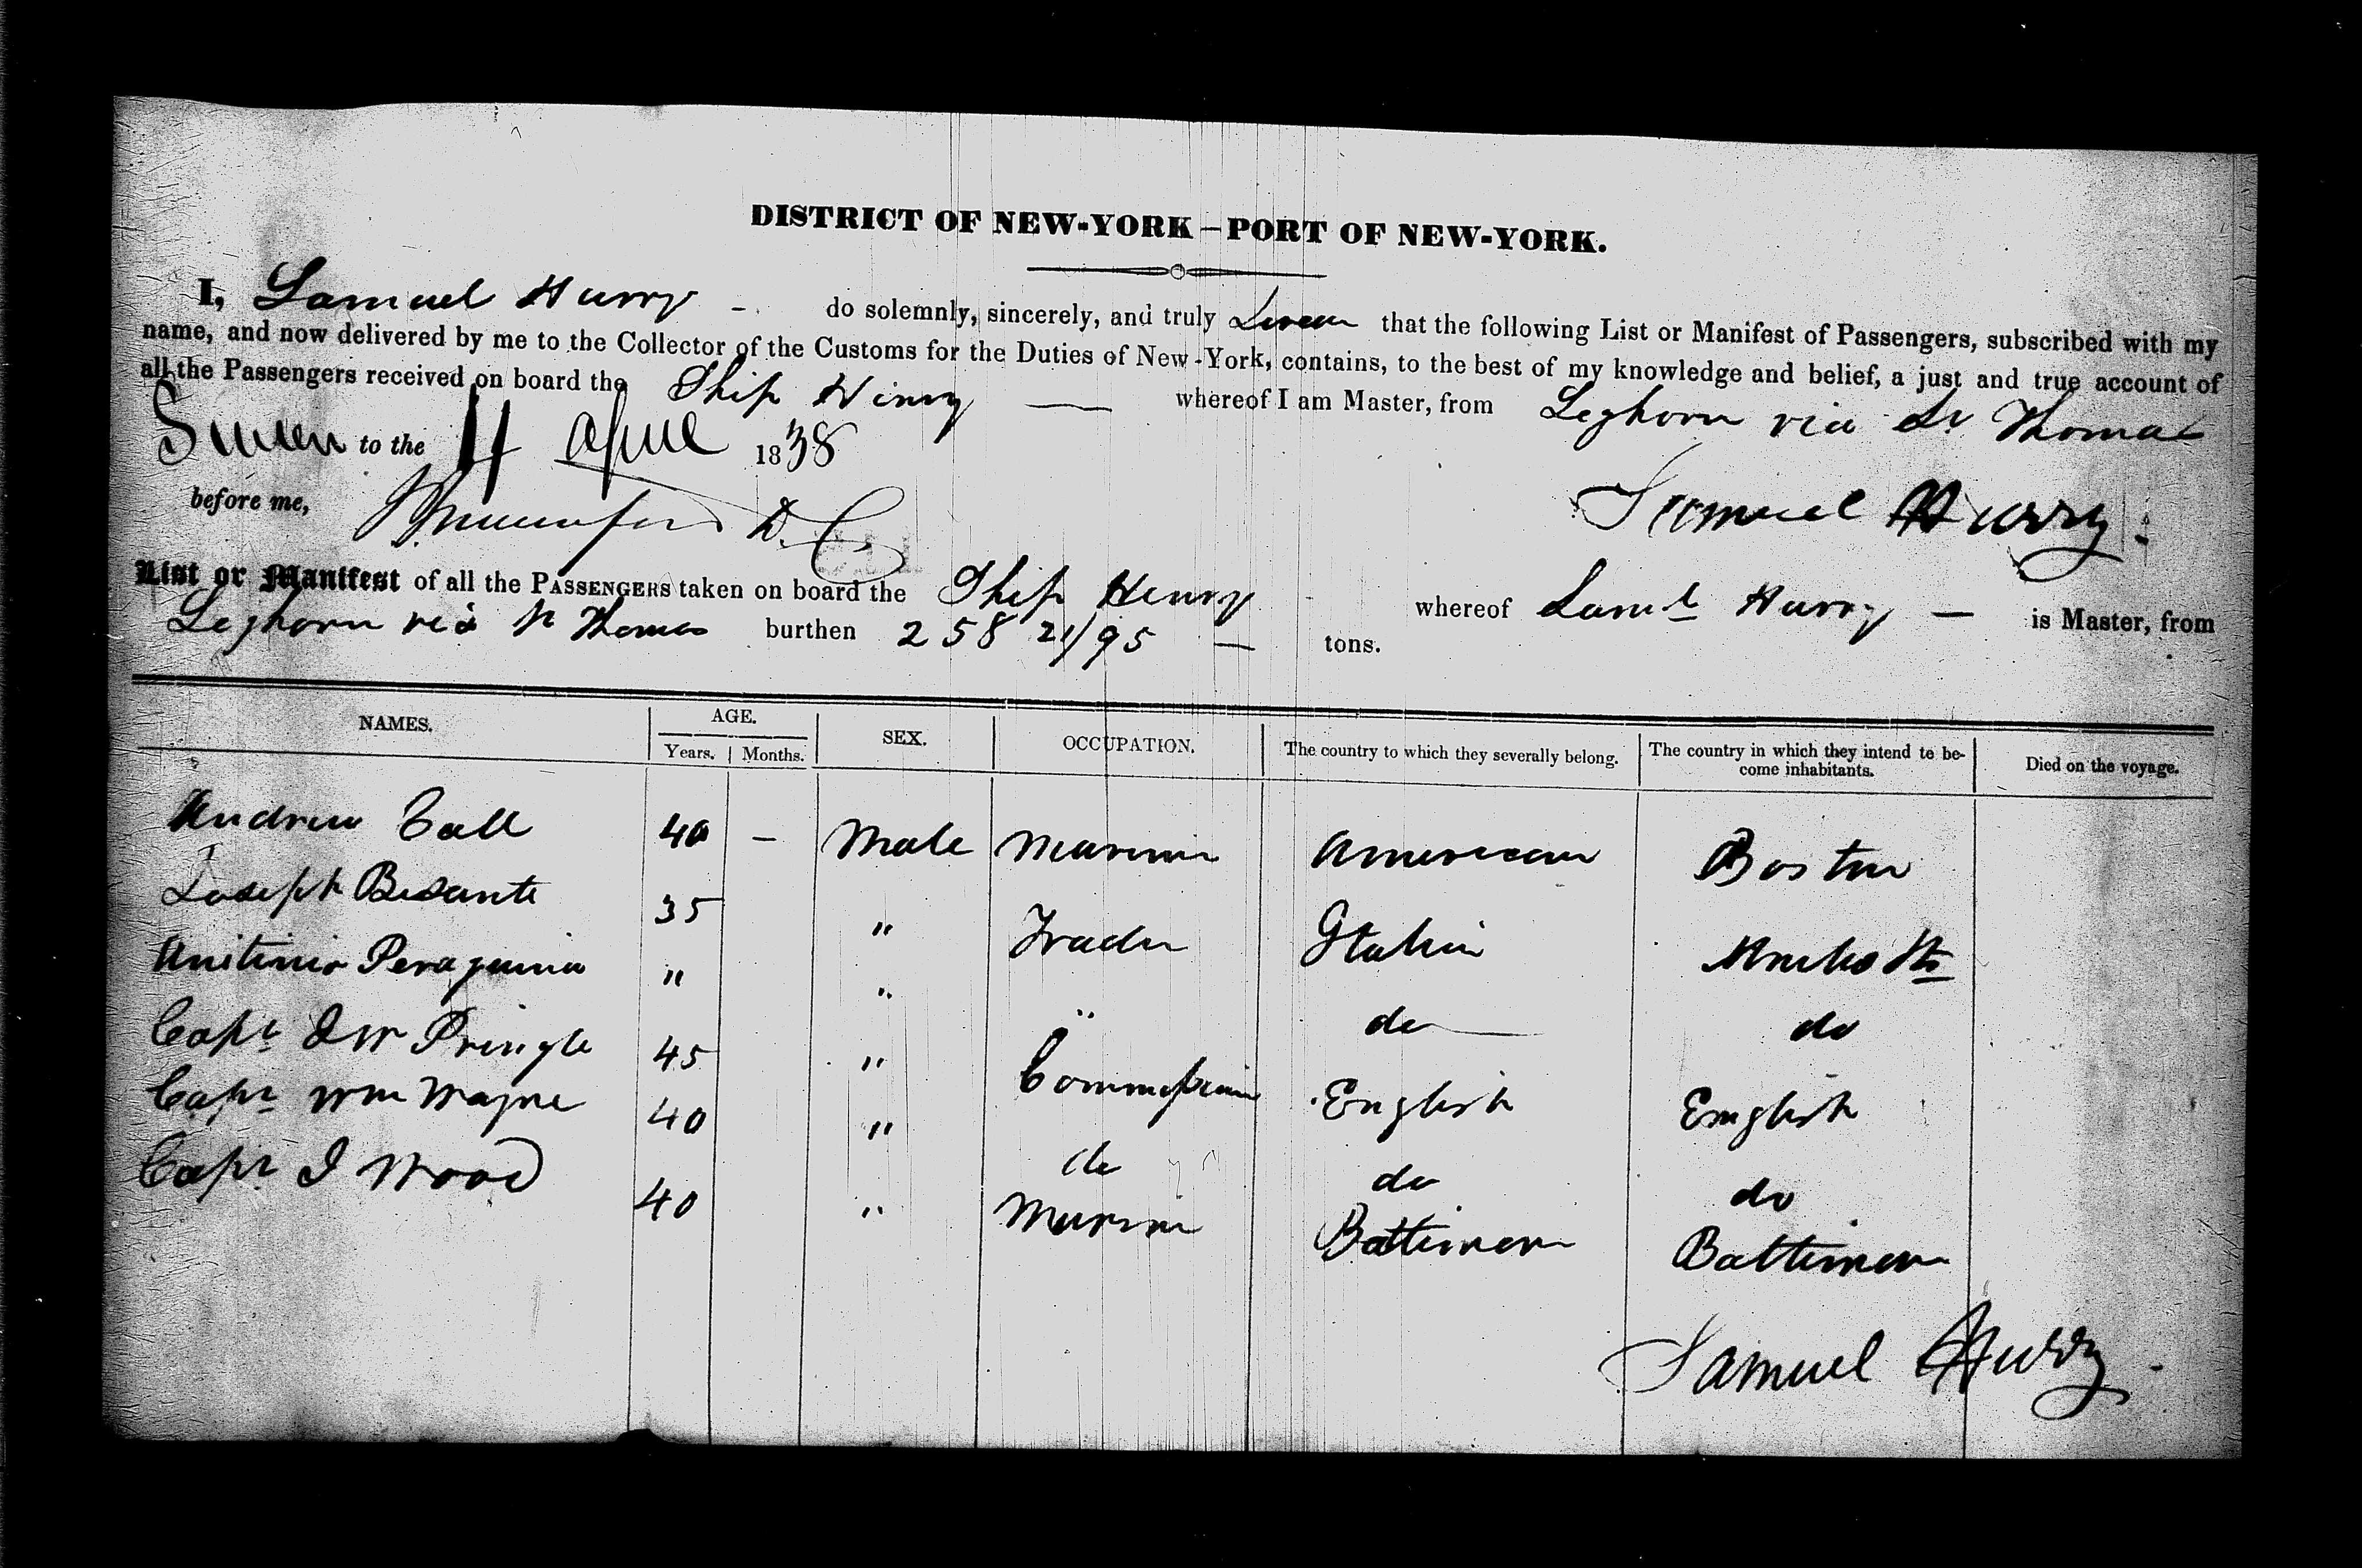 DISTRICT OF NEW-YORK – PORT OF NEW-YORK.
I, Samuel Hurry – do solemnly, sincerely, and truly Swear that the following List or Manifest of Passengers, subscribed with my
name, and now delivered by me to the Collector of the Customs for the Duties of New-York, contains, to the best of my knowledge and belief, a just and true account of
all the Passengers received on board the Ship Henry — whereof I am Master, from Leghorn via St Thomas
Sworn to the 4 April 1838
before me, D. C.
Samuel Hurry.
List or Manifest of all the PASSENGERS taken on board the Ship Henry whereof Saml Hurry – is Master, from
Leghorn via St Thomas burthen 258 21/95 – tons.
NAMES. AGE. SEX. OCCUPATION. The country to which they severally belong. The country in which they intend to be-
come inhabitants. Died on the voyage.
Years. Months.
Andrew Call 40 – Male Marine American Boston
Joseph Besante 35 " Trader Italian
" " " do do
Capt J W Pringle 45 " English English
Capt Wm Mayne 40 " do do do
Capt J Wood 40 " Marine Baltimore Baltimore
Samuel Hurry.